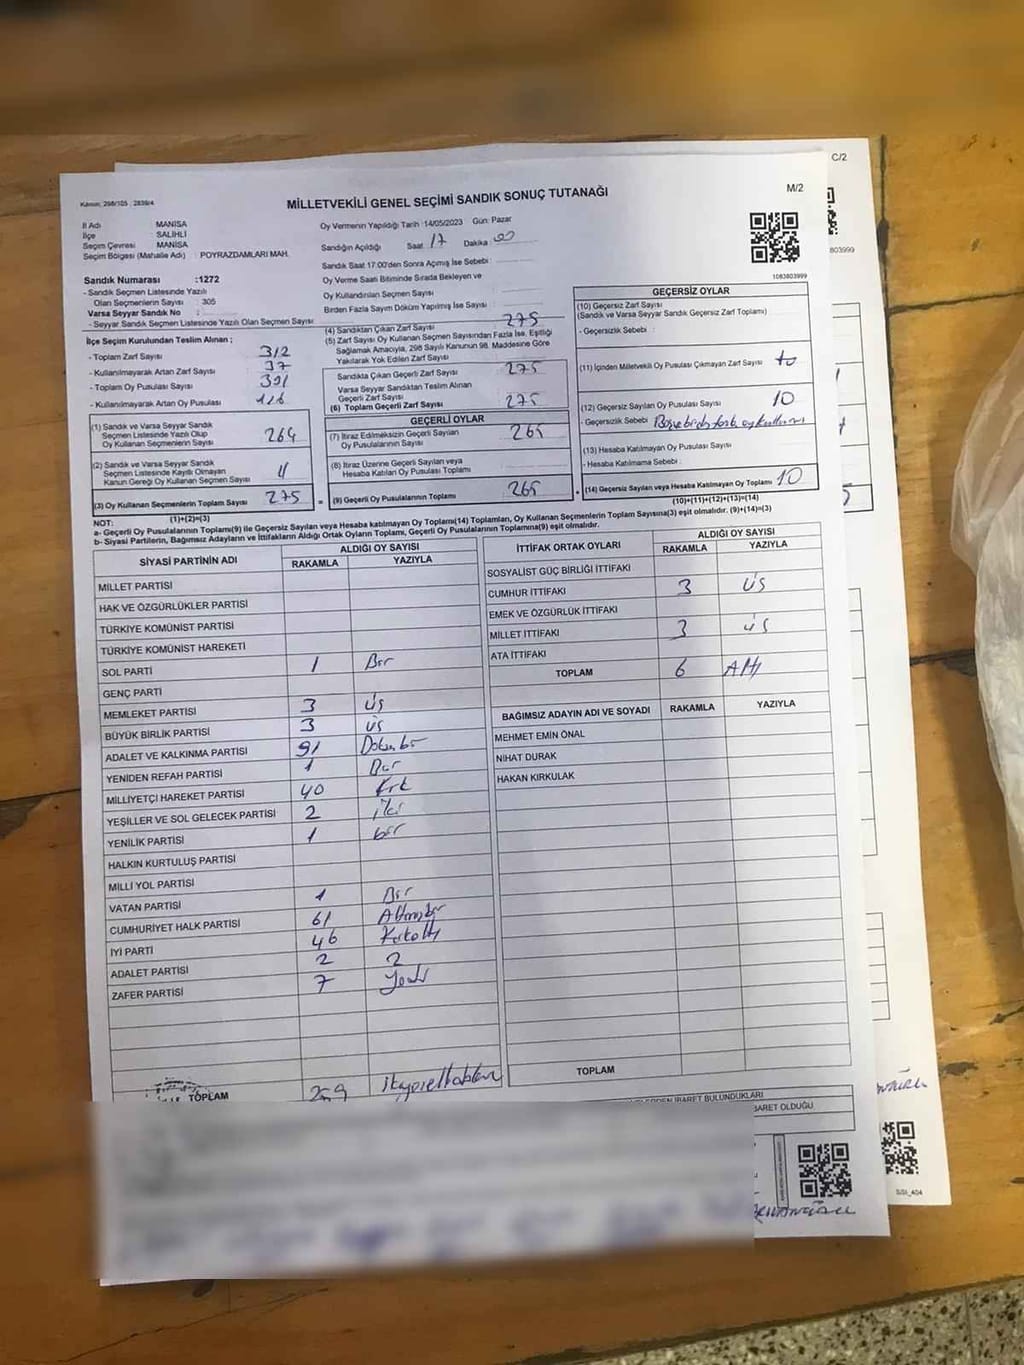 C/2
Kanun: 298/105 ; 2839/4
MİLLETVEKİLİ GENEL SEÇİMİ SANDIK SONUÇ TUTANAĞI
M/2
İl Adı MANİSA
İlçe SALİHLİ
Seçim Çevresi MANİSA
Seçim Bölgesi (Mahalle Adı) : POYRAZDAMLARI MAH.
Oy Vermenin Yapıldığı Tarih :14/05/2023 Gün: Pazar
Sandığın Açıldığı Saat 17 Dakika 00
Sandık Saat 17:00'den Sonra Açılmış İse Sebebi :
Oy Verme Saati Bitiminde Sırada Bekleyen ve
Oy Kullandırılan Seçmen Sayısı
Birden Fazla Sayım Döküm Yapılmış İse Sayısı
1083803999
803999
Sandık Numarası :1272
- Sandık Seçmen Listesinde Yazılı
Olan Seçmenlerin Sayısı : 305
Varsa Seyyar Sandık No :
- Seyyar Sandık Seçmen Listesinde Yazılı Olan Seçmen Sayısı
İlçe Seçim Kurulundan Teslim Alınan ;
- Toplam Zarf Sayısı 312
- Kullanılmayarak Artan Zarf Sayısı 37
- Toplam Oy Pusulası Sayısı
- Kullanılmayarak Artan Oy Pusulası
(1) Sandık ve Varsa Seyyar Sandık
Seçmen Listesinde Yazılı Olup
Oy Kullanan Seçmenlerin Sayısı 264
(2) Sandık ve Varsa Seyyar Sandık
Seçmen Listesinde Kayıtlı Olmayan
Kanun Gereği Oy Kullanan Seçmen Sayısı 11
(3) Oy Kullanan Seçmenlerin Toplam Sayısı 275
(1)+(2)=(3)
(4) Sandıktan Çıkan Zarf Sayısı 275
(5) Zarf Sayısı Oy Kullanan Seçmen Sayısından Fazla İse, Eşitliği
Sağlamak Amacıyla, 298 Sayılı Kanunun 98. Maddesine Göre
Yakılarak Yok Edilen Zarf Sayısı
Sandıkta Çıkan Geçerli Zarf Sayısı 275
Varsa Seyyar Sandıktan Teslim Alınan
Geçerli Zarf Sayısı
(6) Toplam Geçerli Zarf Sayısı 275
GEÇERLİ OYLAR
(7) İtiraz Edilmeksizin Geçerli Sayılan
Oy Pusulasının Sayısı 265
(8) İtiraz Üzerine Geçerli Sayılan veya
Hesaba Katılan Oy Pusulası Toplamı
= (9) Geçerli Oy Pusulalarının Toplamı 265
GEÇERSİZ OYLAR
(10) Geçersiz Zarf Sayısı
(Sandık ve Varsa Seyyar Sandık Geçersiz Zarf Toplamı)
- Geçersizlik Sebebi :
(11) İçinden Milletvekili Oy Pusulası Çıkmayan Zarf Sayısı
(12) Geçersiz Sayılan Oy Pusulası Sayısı 10
- Geçersizlik Sebebi :
(13) Hesaba Katılmayan Oy Pusulası Sayısı
- Hesaba Katılmama Sebebi :
+ (14) Geçersiz Sayılan veya Hesaba Katılmayan Oy Toplamı 10
(10)+(11)+(12)+(13)=(14)
NOT:
a- Geçerli Oy Pusulalarının Toplamı(9) ile Geçersiz Sayılan veya Hesaba katılmayan Oy Toplamı(14) Toplamları, Oy Kullanan Seçmenlerin Toplam Sayısına(3) eşit olmalıdır. (9)+(14)=(3)
b- Siyasi Partilerin, Bağımsız Adayların ve İttifakların Aldığı Ortak Oyların Toplamı, Geçerli Oy Pusulalarının Toplamına(9) eşit olmalıdır.
SİYASİ PARTİNİN ADI ALDIĞI OY SAYISI
RAKAMLA YAZIYLA
MİLLET PARTİSİ
HAK VE ÖZGÜRLÜKLER PARTİSİ
TÜRKİYE KOMÜNİST PARTİSİ
TÜRKİYE KOMÜNİST HAREKETİ
SOL PARTİ 1 Bir
GENÇ PARTİ
MEMLEKET PARTİSİ 3 üç
BÜYÜK BİRLİK PARTİSİ 3 üç
ADALET VE KALKINMA PARTİSİ 91 Doksanbir
YENİDEN REFAH PARTİSİ 1 Bir
MİLLİYETÇİ HAREKET PARTİSİ 40 Kırk
YEŞİLLER VE SOL GELECEK PARTİSİ 2 iki
YENİLİK PARTİSİ 1 bir
HALKIN KURTULUŞ PARTİSİ
MİLLİ YOL PARTİSİ
VATAN PARTİSİ 1 Bir
CUMHURİYET HALK PARTİSİ 61 Altmışbir
İYİ PARTİ 46 Kırkaltı
ADALET PARTİSİ 2 2
ZAFER PARTİSİ 7 Yedi
TOPLAM 259
İTTİFAK ORTAK OYLARI ALDIĞI OY SAYISI
RAKAMLA YAZIYLA
SOSYALİST GÜÇ BİRLİĞİ İTTİFAKI
CUMHUR İTTİFAKI 3 üç
EMEK VE ÖZGÜRLÜK İTTİFAKI
MİLLET İTTİFAKI 3 üç
ATA İTTİFAKI
TOPLAM 6 Altı
BAĞIMSIZ ADAYIN ADI VE SOYADI RAKAMLA YAZIYLA
MEHMET EMİN ÖNAL
NİHAT DURAK
HAKAN KIRKULAK
TOPLAM
BULUNDUKLARI
BARET OLDUĞU